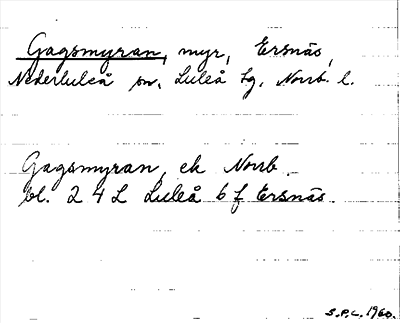 Gagsmyran, myr, Ersnäs,
Nederluleå sn, Luleå tg, Norrb. l.
Gagsmyran, ek Norrb.
bl. 24 L Luleå 6 f Ersnäs.
S.P.L. 1960.